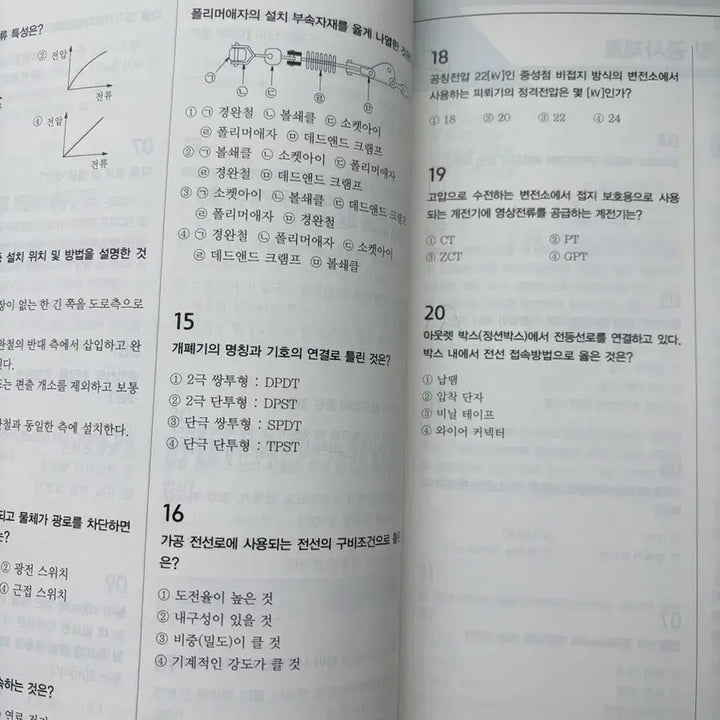 류 특성은?
② 전압
전류
④ 전압
전류
설치 위치 및 방법을 설명한 것
장이 없는 한 긴 쪽을 도로측으로
완철의 반대 측에서 삽입하고 완
된다.
또는 편출 개소를 제외하고 보통
완철과 동일한 측에 설치한다.
되고 물체가 광로를 차단하면
는?
② 광전 스위치
④ 근접 스위치
속하는 것은?
폴리머애자의 설치 부속자재를 옳게 나열한 것은?
㉠ ㉡ ㉢ ㉣ ㉤
① ㉠ 경완철 ㉡ 볼쇄클 ㉢ 소켓아이
㉣ 폴리머애자 ㉤ 데드앤드 크램프
② ㉠ 볼쇄클 ㉡ 소켓아이 ㉢ 폴리머애자
㉣ 경완철 ㉤ 데드앤드 크램프
③ ㉠ 소켓아이 ㉡ 볼쇄클 ㉢ 데드앤드 크램프
㉣ 폴리머애자 ㉤ 경완철
④ ㉠ 경완철 ㉡ 폴리머애자 ㉢ 소켓아이
㉣ 데드앤드 크램프 ㉤ 볼쇄클
15
개폐기의 명칭과 기호의 연결로 틀린 것은?
① 2극 쌍투형 : DPDT
② 2극 단투형 : DPST
③ 단극 쌍투형 : SPDT
④ 단극 단투형 : TPST
16
가공 전선로에 사용되는 전선의 구비조건으로 틀린
은?
① 도전율이 높은 것
② 내구성이 있을 것
③ 비중(밀도)이 클 것
④ 기계적인 강도가 클 것
18
공칭전압 22[kV]인 중성점 비접지 방식의 변전소에서
사용하는 피뢰기의 정격전압은 몇 [kV]인가?
① 18 ② 20 ③ 22 ④ 24
19
고압으로 수전하는 변전소에서 접지 보호용으로 사용
되는 계전기에 영상전류를 공급하는 계전기는?
① CT ② PT
③ ZCT ④ GPT
20
아웃렛 박스(정션박스)에서 전등선로를 연결하고 있다.
박스 내에서 전선 접속방법으로 옳은 것은?
① 납땜
② 압착 단자
③ 비닐 테이프
④ 와이어 커넥터